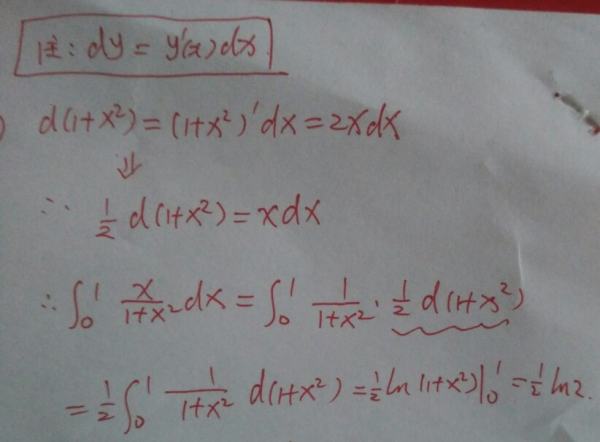 注: dy = y'(x)dx.
) d(1+x²) = (1+x²)'dx = 2xdx
⇓
∴ 1/2 d(1+x²) = xdx
∴ ∫₀¹ x/(1+x²) dx = ∫₀¹ 1/(1+x²) · 1/2 d(1+x²)
= 1/2 ∫₀¹ 1/(1+x²) d(1+x²) = 1/2 ln(1+x²)|₀¹ = 1/2 ln2.